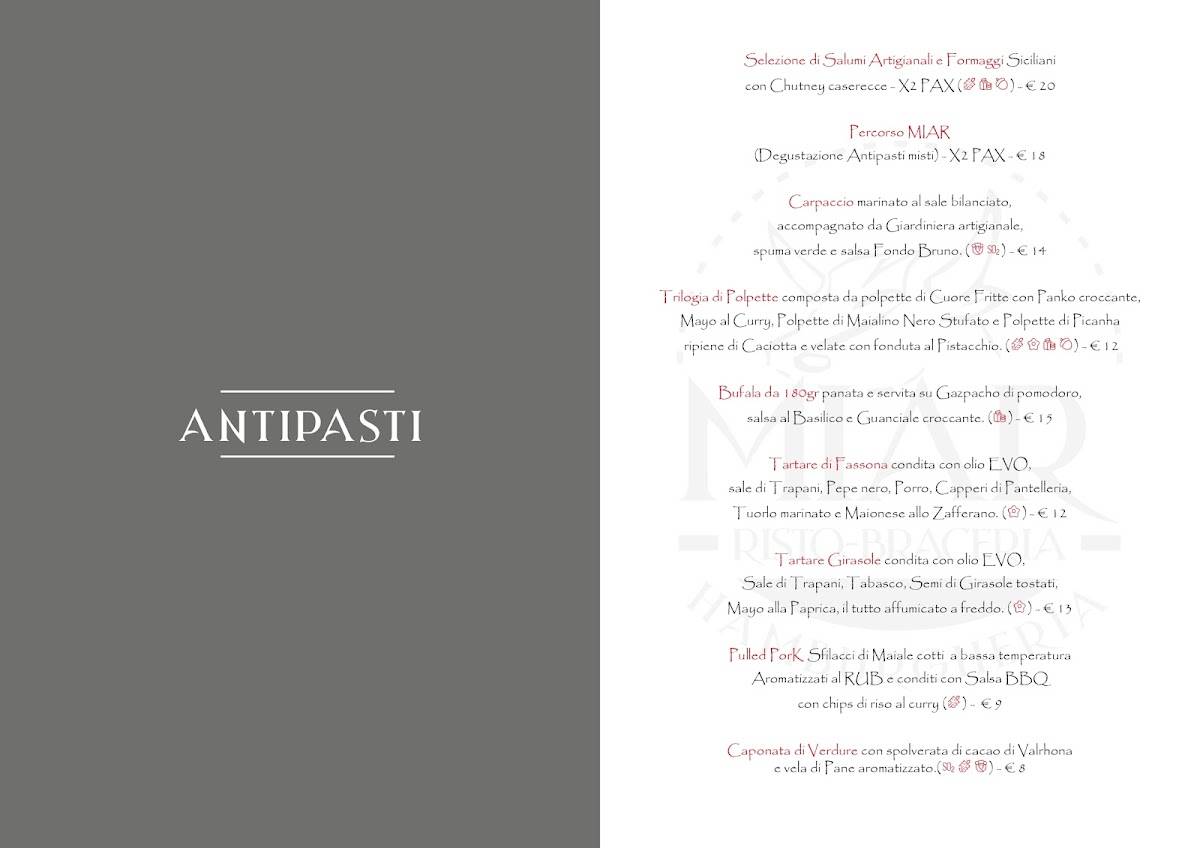 ANTIPASTI
Selezione di Salumi Artigianali e Formaggi Siciliani
con Chutney caserecce - X2 PAX ( ) - € 20
Percorso MIAR
(Degustazione Antipasti misti) - X2 PAX - € 18
Carpaccio marinato al sale bilanciato,
accompagnato da Giardiniera artigianale,
spuma verde e salsa Fondo Bruno. ( SO2 ) - € 14
Trilogia di Polpette composta da polpette di Cuore Fritte con Panko croccante,
Mayo al Curry, Polpette di Maialino Nero Stufato e Polpette di Picanha
ripiene di Caciotta e velate con fonduta al Pistacchio. ( ) - € 12
Bufala da 180gr panata e servita su Gazpacho di pomodoro,
salsa al Basilico e Guanciale croccante. ( ) - € 15
Tartare di Fassona condita con olio EVO,
sale di Trapani, Pepe nero, Porro, Capperi di Pantelleria,
Tuorlo marinato e Maionese allo Zafferano. ( ) - € 12
Tartare Girasole condita con olio EVO,
Sale di Trapani, Tabasco, Semi di Girasole tostati,
Mayo alla Paprica, il tutto affumicato a freddo. ( ) - € 13
Pulled PorK Sfilacci di Maiale cotti a bassa temperatura
Aromatizzati al RUB e conditi con Salsa BBQ
con chips di riso al curry ( ) - € 9
Caponata di Verdure con spolverata di cacao di Valrhona
e vela di Pane aromatizzato.(SO2 ) - € 8
MIAR
RISTO-BRACERIA
HAMBURGHERIA